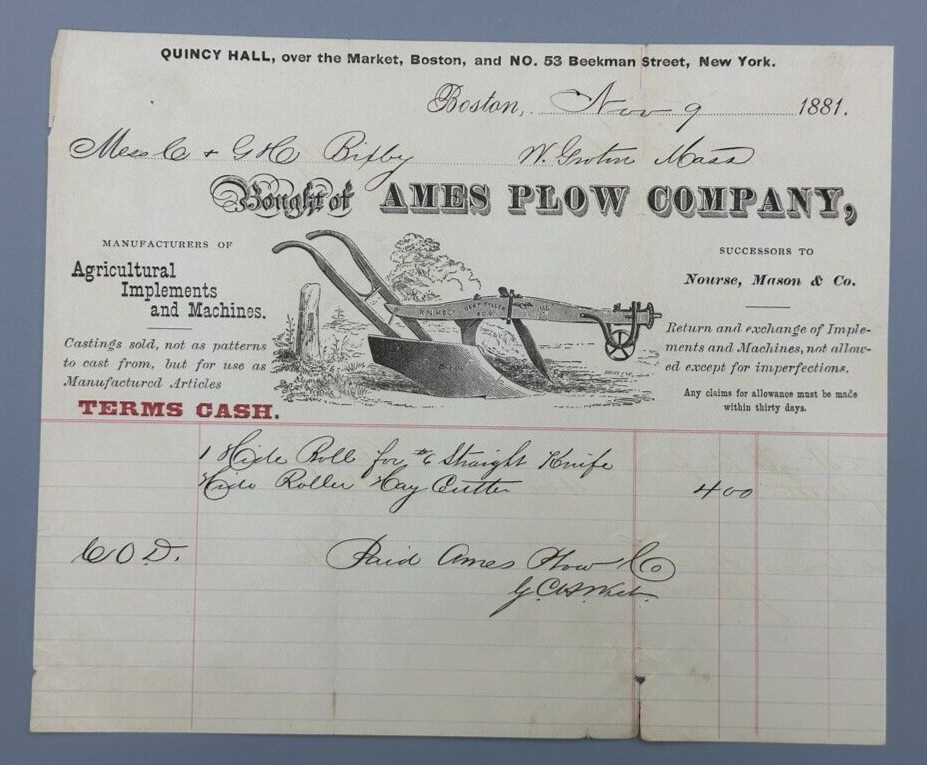 QUINCY HALL, over the Market, Boston, and NO. 53 Beekman Street, New York.
Boston, Nov 9 1881.
Mess C & G H Bixby W. Groton Mass
Bought of AMES PLOW COMPANY,
MANUFACTURERS OF
Agricultural
Implements
and Machines.
Castings sold, not as patterns
to cast from, but for use as
Manufactured Articles
TERMS CASH.
SUCCESSORS TO
Nourse, Mason & Co.
Return and exchange of Imple-
ments and Machines, not allow-
ed except for imperfections.
Any claims for allowance must be made
within thirty days.
1 Hide Roll for No 6 Straight Knife
Hide Roller Hay Cutter 4 00
C O D. Paid Ames Plow Co